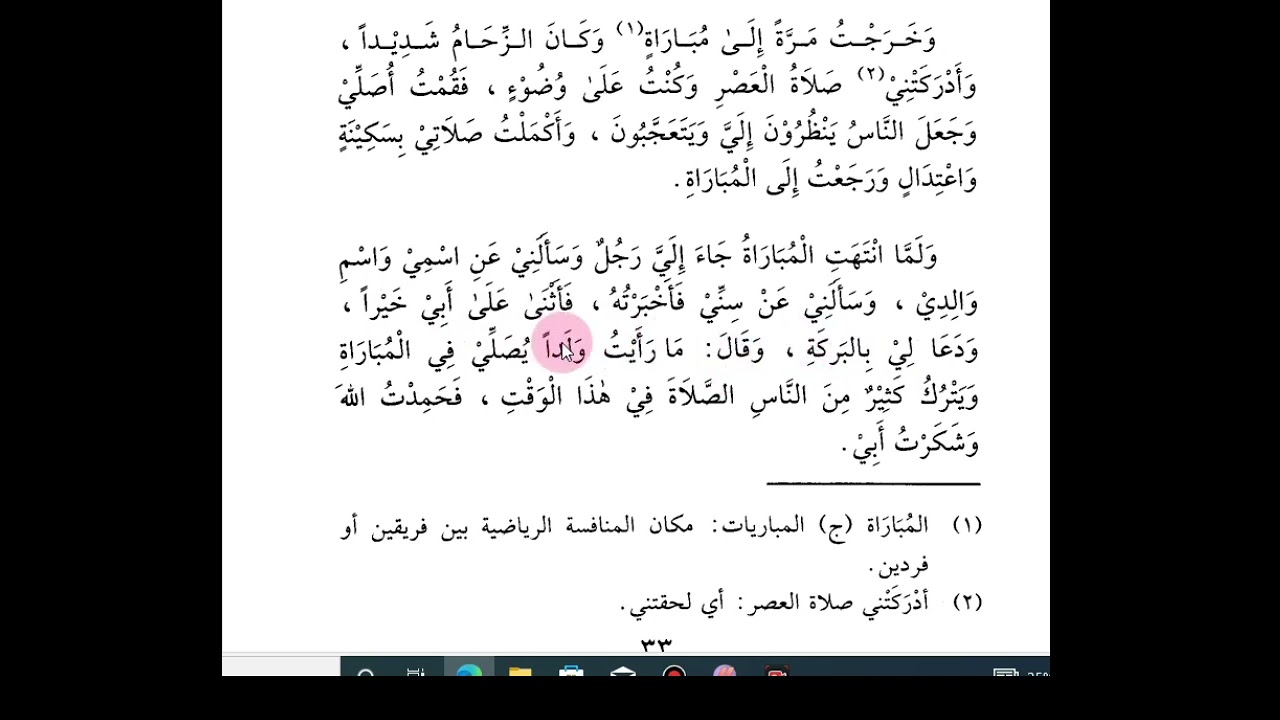 وَخَرَجْتُ مَرَّةً إِلَىٰ مُبَارَاةٍ(١) وَكَانَ الزِّحَامُ شَدِيْداً ،
وَأَدْرَكَتْنِيْ(٢) صَلَاةُ الْعَصْرِ وَكُنْتُ عَلَىٰ وُضُوْءٍ ، فَقُمْتُ أُصَلِّيْ
وَجَعَلَ النَّاسُ يَنْظُرُوْنَ إِلَيَّ وَيَتَعَجَّبُونَ ، وَأَكْمَلْتُ صَلَاتِيْ بِسَكِيْنَةٍ
وَاعْتِدَالٍ وَرَجَعْتُ إِلَى الْمُبَارَاةِ .
وَلَمَّا انْتَهَتِ الْمُبَارَاةُ جَاءَ إِلَيَّ رَجُلٌ وَسَأَلَنِيْ عَنِ اسْمِيْ وَاسْمِ
وَالِدِيْ ، وَسَأَلَنِيْ عَنْ سِنِّيْ فَأَخْبَرْتُهُ ، فَأَثْنَىٰ عَلَىٰ أَبِيْ خَيْراً ،
وَدَعَا لِيْ بِالبَركَةِ ، وَقَالَ : مَا رَأَيْتُ وَلَداً يُصَلِّيْ فِي الْمُبَارَاةِ
وَيَتْرُكُ كَثِيْرٌ مِنَ النَّاسِ الصَّلَاةَ فِيْ هٰذَا الْوَقْتِ ، فَحَمِدْتُ اللهَ
وَشَكَرْتُ أَبِيْ .
(١) المُبَارَاة (ج) المباريات : مكان المنافسة الرياضية بين فريقين أو
فردين .
(٢) أدْرَكَتْني صلاة العصر : أي لحقتني .
٣٣